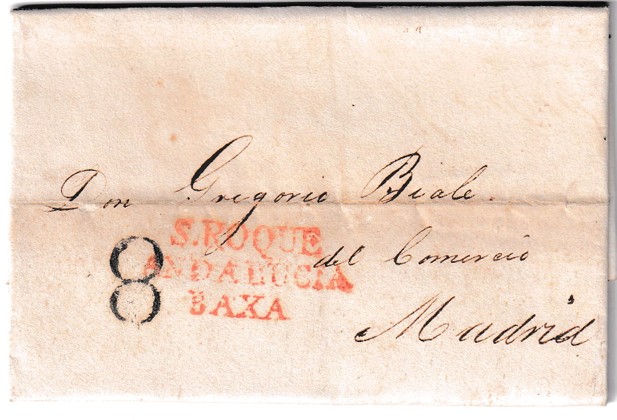 Don Gregorio Biale.
S.ROQUE
del Comercio
ANDALUCIA
8
BAXA
Madrid